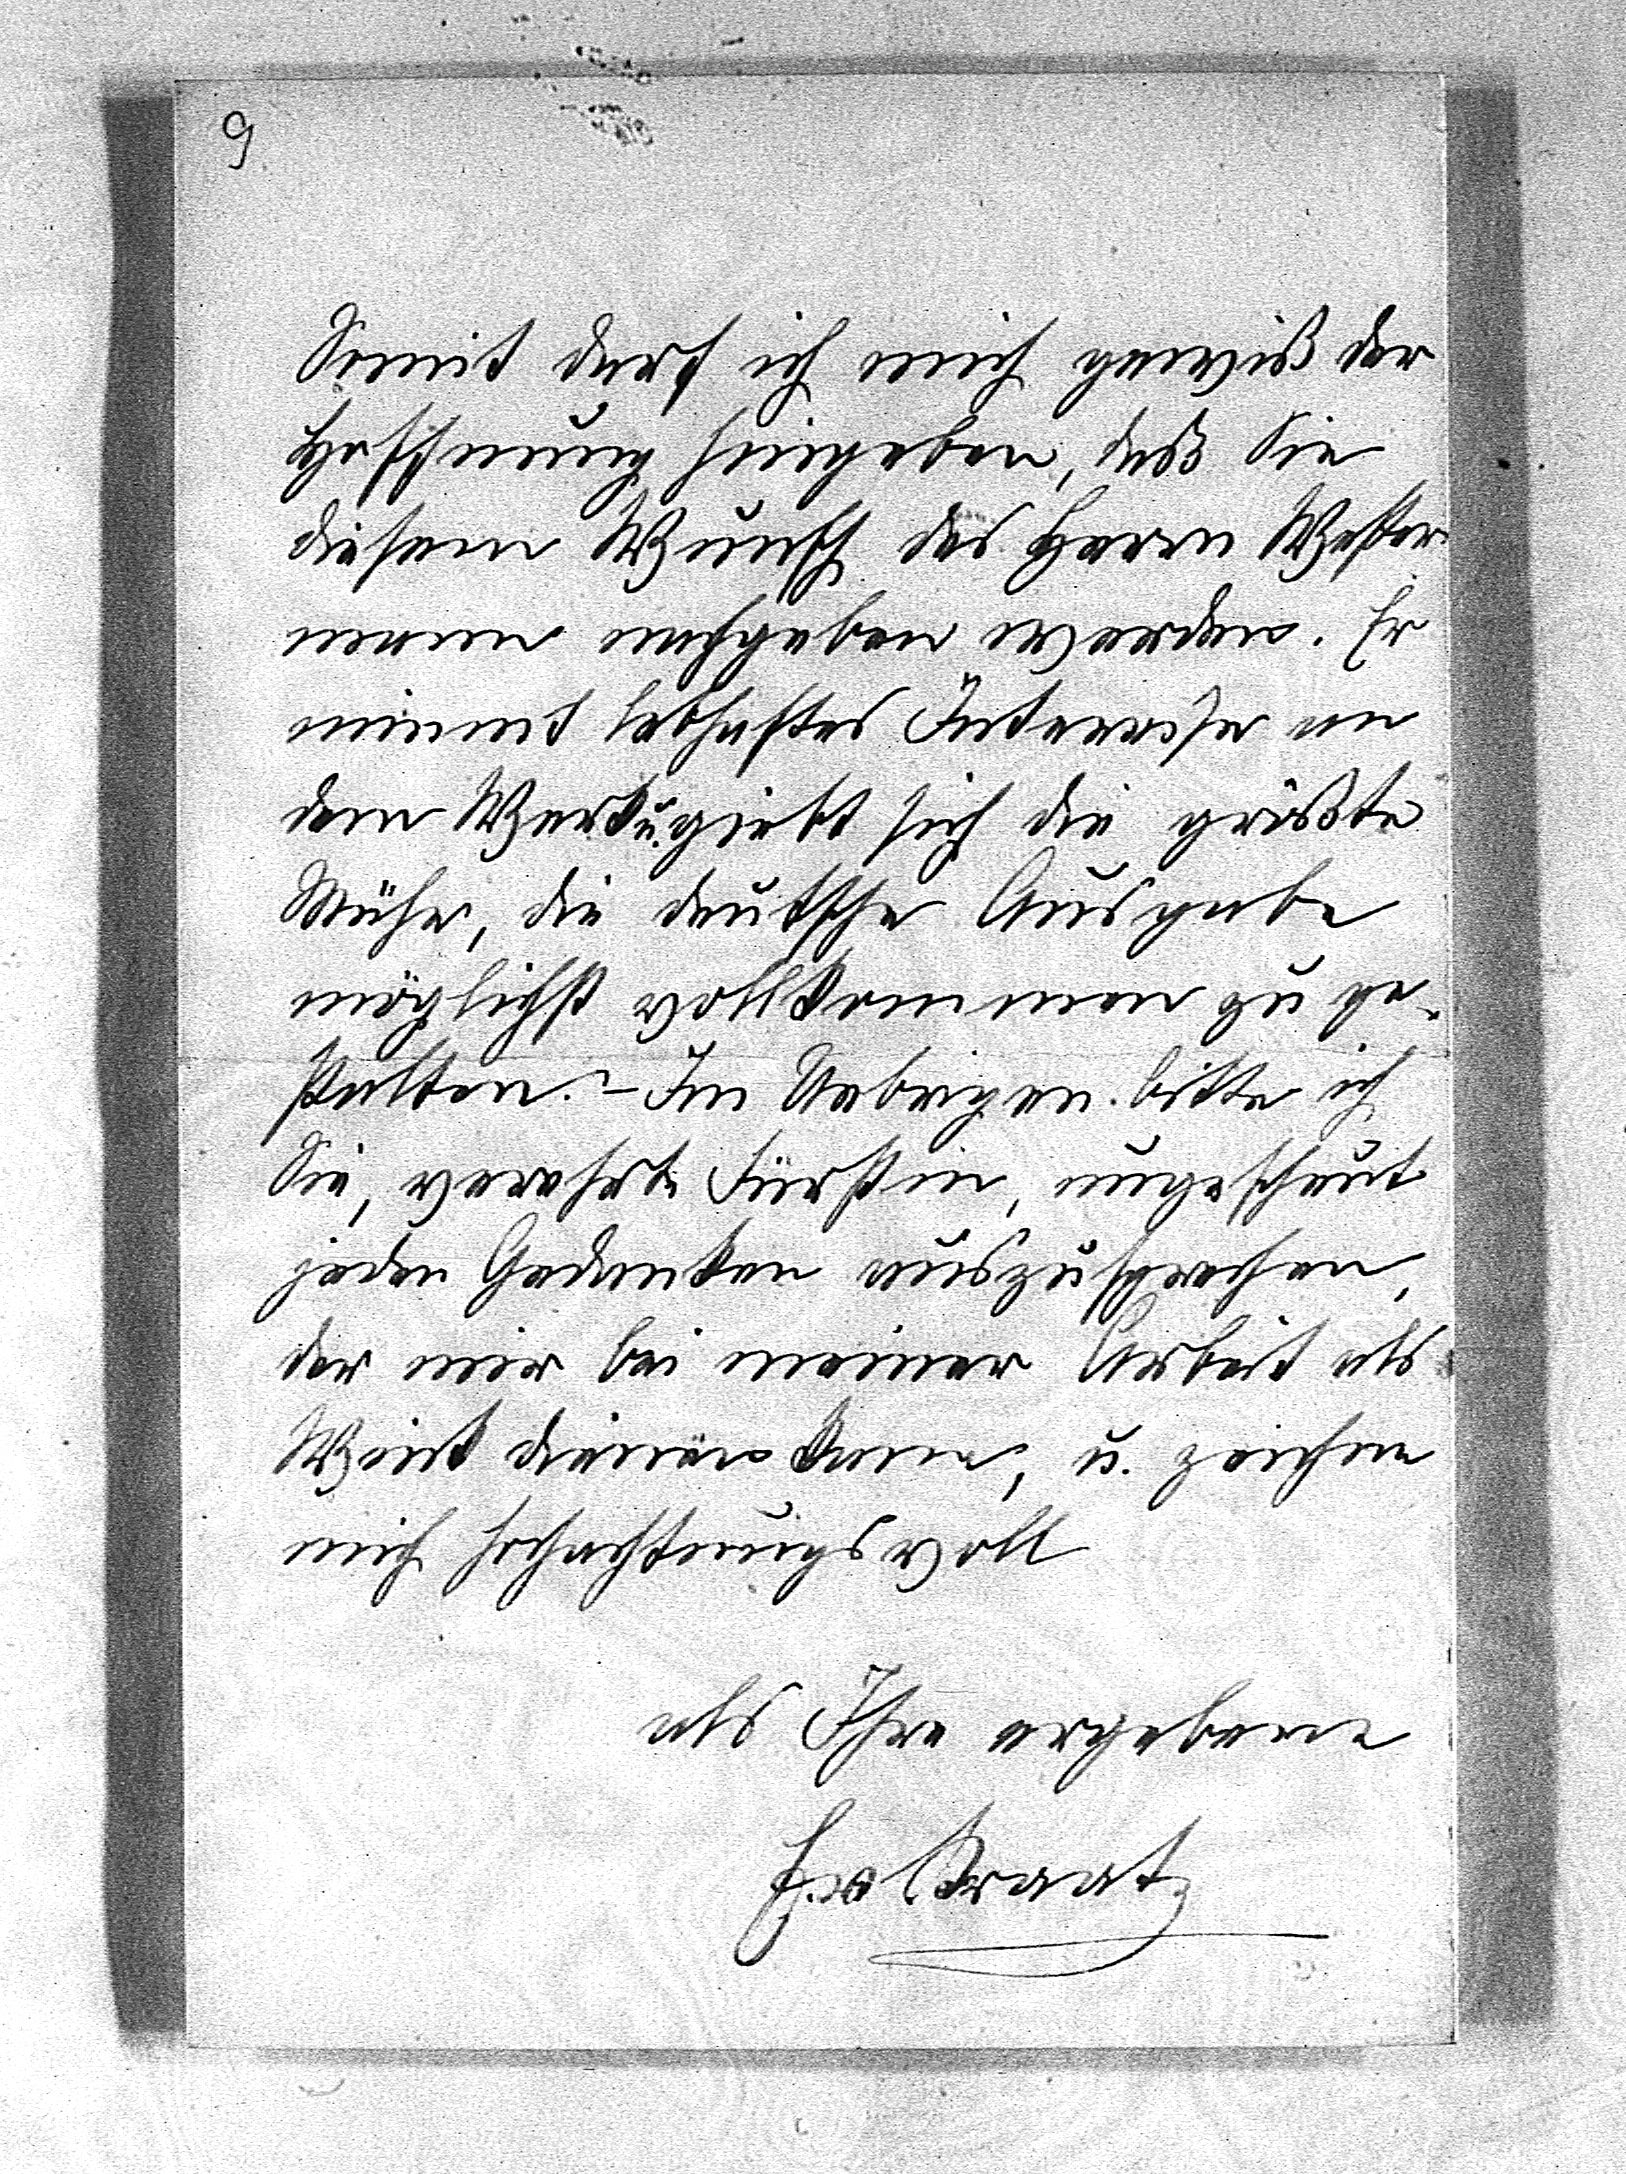 9
Somit darf ich mich gewiß der
Hoffnung hingeben, daß Sie
diesem Wunsch des Herrn Wester-
mann nachgeben werden. Er
nimmt lebhaftes Interesse an
dem Werk u. giebt sich die größte
Mühe, die deutsche Ausgabe
möglichst vollkommen zu ge-
stalten. – Im Uebrigen bitte ich
Sie, verehrte Fürstin, ungescheut
jeden Gedanken auszusprechen,
der mir bei meiner Arbeit als
Wink dienen kann, u. zeichne
mich hochachtungsvoll
als Ihre ergebene
Kraatz